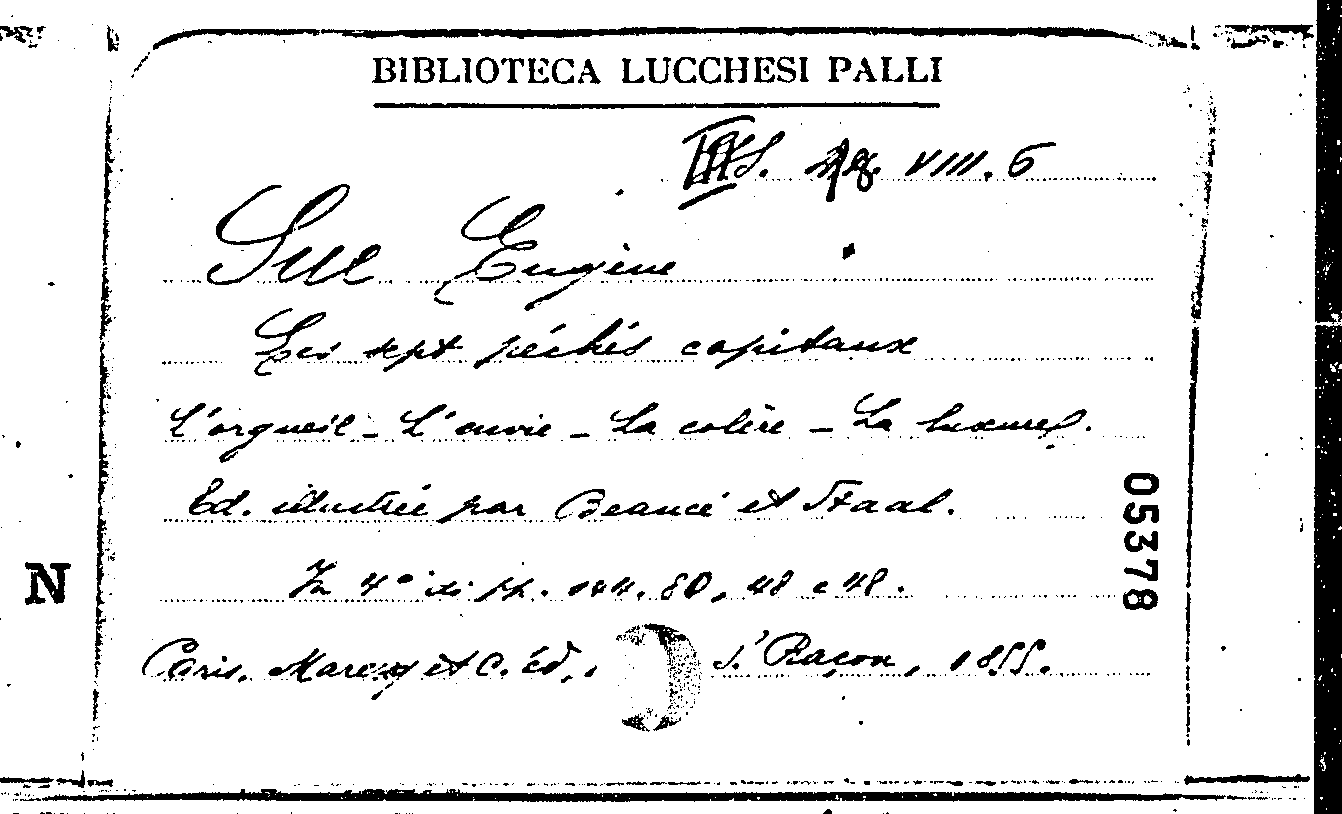 BIBLIOTECA LUCCHESI PALLI
VIII. 6
Sue Eugène
Les sept péchés capitaux
L'orgueil - L'envie - La colère - La luxure.
Ed. illustrée par Beaucé et Staal.
In 4° di pp. 144. 80, 48 e 48.
Paris. Marescq et C. éd., J. Raçon, 1855.
05378
N